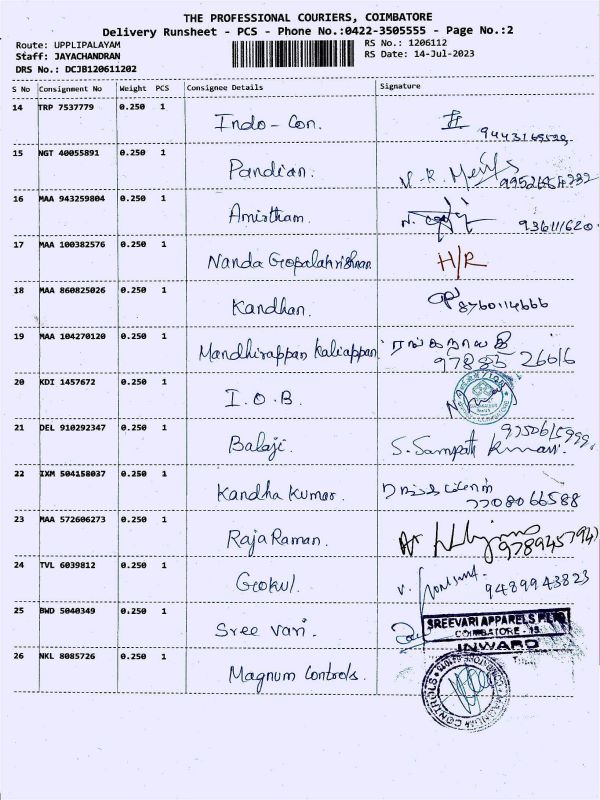 THE PROFESSIONAL COURIERS, COIMBATORE
Delivery Runsheet - PCS - Phone No.:0422-3505555 - Page No.:2
Route: UPPLIPALAYAM RS No.: 1206112
Staff: JAYACHANDRAN RS Date: 14-Jul-2023
DRS No.: DCJB120611202
S No Consignment No Weight PCS Consignee Details Signature
14 TRP 7537779 0.250 1 Indo-Con.
15 NGT 40055891 0.250 1 Pandian.
16 MAA 943259804 0.250 1 Amirtham. 936111620
17 MAA 100382576 0.250 1 Nanda Gopalakrishnan H/R
18 MAA 860825026 0.250 1 Kandhan. 8760114666
19 MAA 104270120 0.250 1 Mandhirappan Kaliappan 97885 26616
20 KDI 1457672 0.250 1 I.O.B
21 DEL 910292347 0.250 1 Balaji. S. Sampath Kumari. 9750615999
22 IXM 504158037 0.250 1 Kandha Kumar. 7708066588
23 MAA 572606273 0.250 1 RajaRaman.
24 TVL 6039812 0.250 1 Gokul. 9489943823
25 BWD 5040349 0.250 1 Sree vari. SREEVARI APPARELS
COIMBATORE - 15
INWARD
26 NKL 8085726 0.250 1 Magnum Controls.
MAGNUM CONTROLS